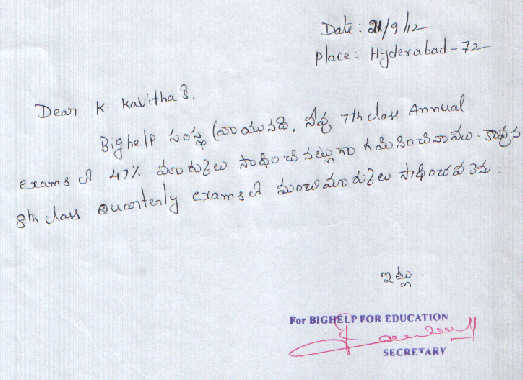 Date: 21/9/12
place: Hyderabad-72
Dear K Kavitha
Bighelp సంస్థ వ్రాయునది, నీవు 7th class Annual
Exams లో 47% మార్కులు సాధించినట్లుగా గమనించినాము. కావున
8th class Quarterly exams లో మంచి మార్కులు సాధించవలెను.
ఇట్లు
For BIGHELP FOR EDUCATION
SECRETARY